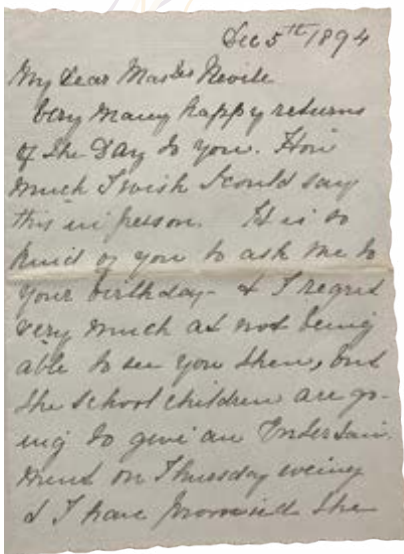 Dec 5th/1894
My Dear Master Nevile
Very Many happy returns
of the Day to you. How
much I wish I could say
this in person. It is so
kind of you to ask me to
your birthday & I regret
very much at not being
able to see you then, but
the school children are go-
ing to give an Entertain
ment on Thursday evening
& I have promised the